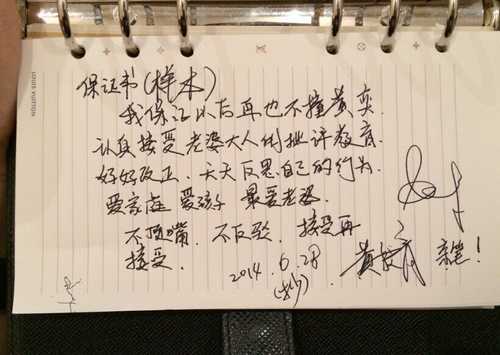 LOUIS VUITTON
保证书(样本)
我保证以后再也不撞黄奕.
认真接受老婆大人的批评教育.
好好改正. 天天反思自己的行为.
爱家庭 爱孩子 最爱老婆.
不顶嘴. 不反驳. 接受再
接受. 2014.6.28 黄毅清 亲笔!